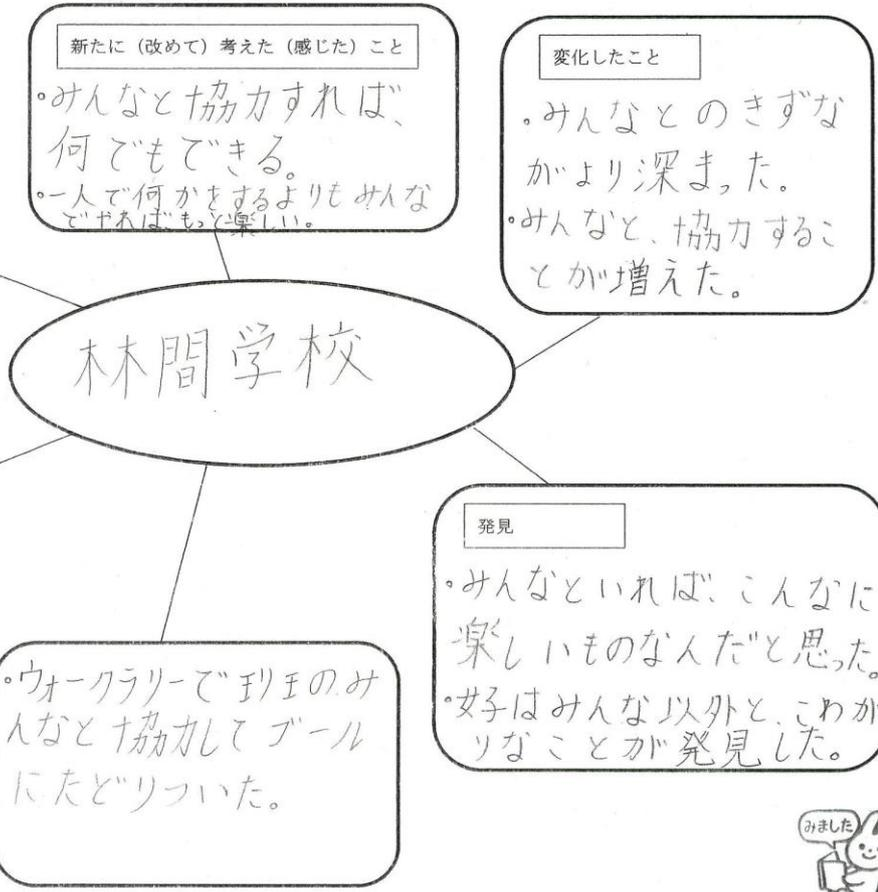 新たに（改めて）考えた（感じた）こと
・みんなと協力すれば、
何でもできる。
・一人で何かをするよりもみんな
でやれば、もっと楽しい。
変化したこと
・みんなとのきずな
がより深まった。
・みんなと、協力するこ
とが増えた。
林間学校
発見
・みんなといれば、こんなに
楽しいものなんだと思った。
・女子はみんな以外と、こわが
りなことが発見した。
・ウォークラリーで班のみ
んなと協力してゴール
にたどりついた。
みました